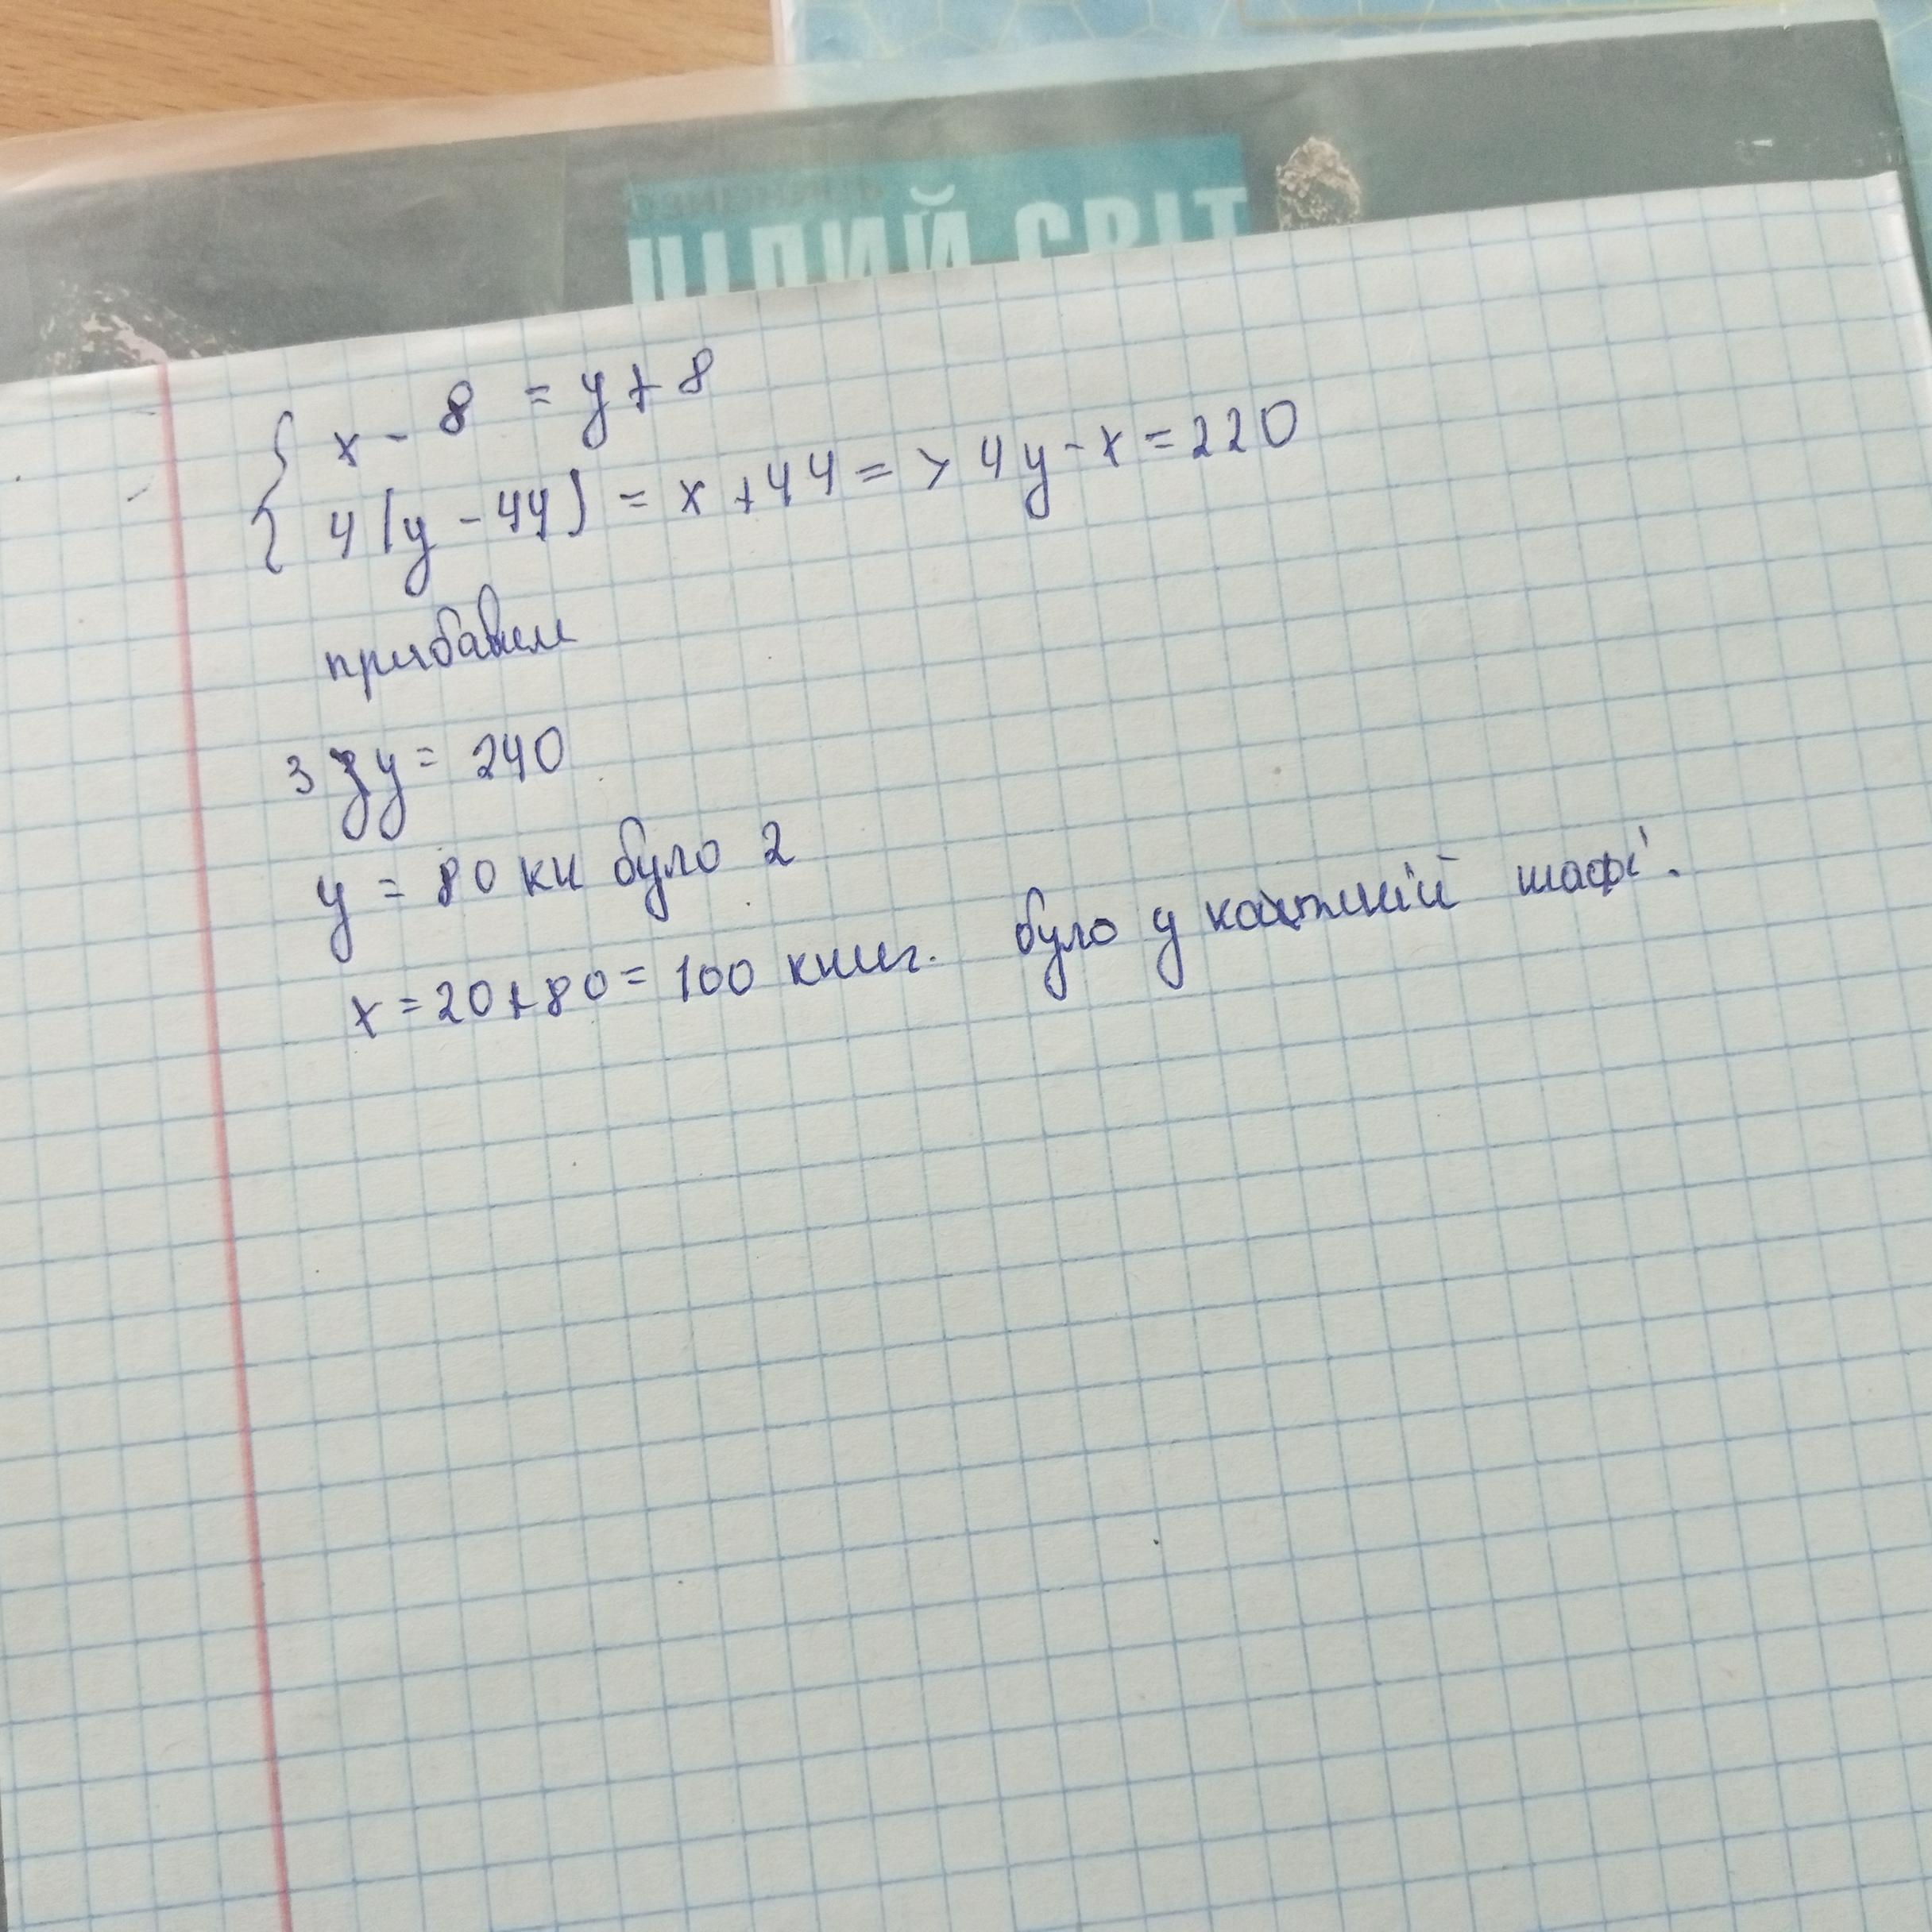 ЦІЛИЙ СВІТ
{ x - 8 = y + 8
{ 4(y - 44) = x + 44 => 4y - x = 220
прибавим
3 3y = 240
y = 80 кн було 2
x = 20 + 80 = 100 книг. було у кожній шафі.